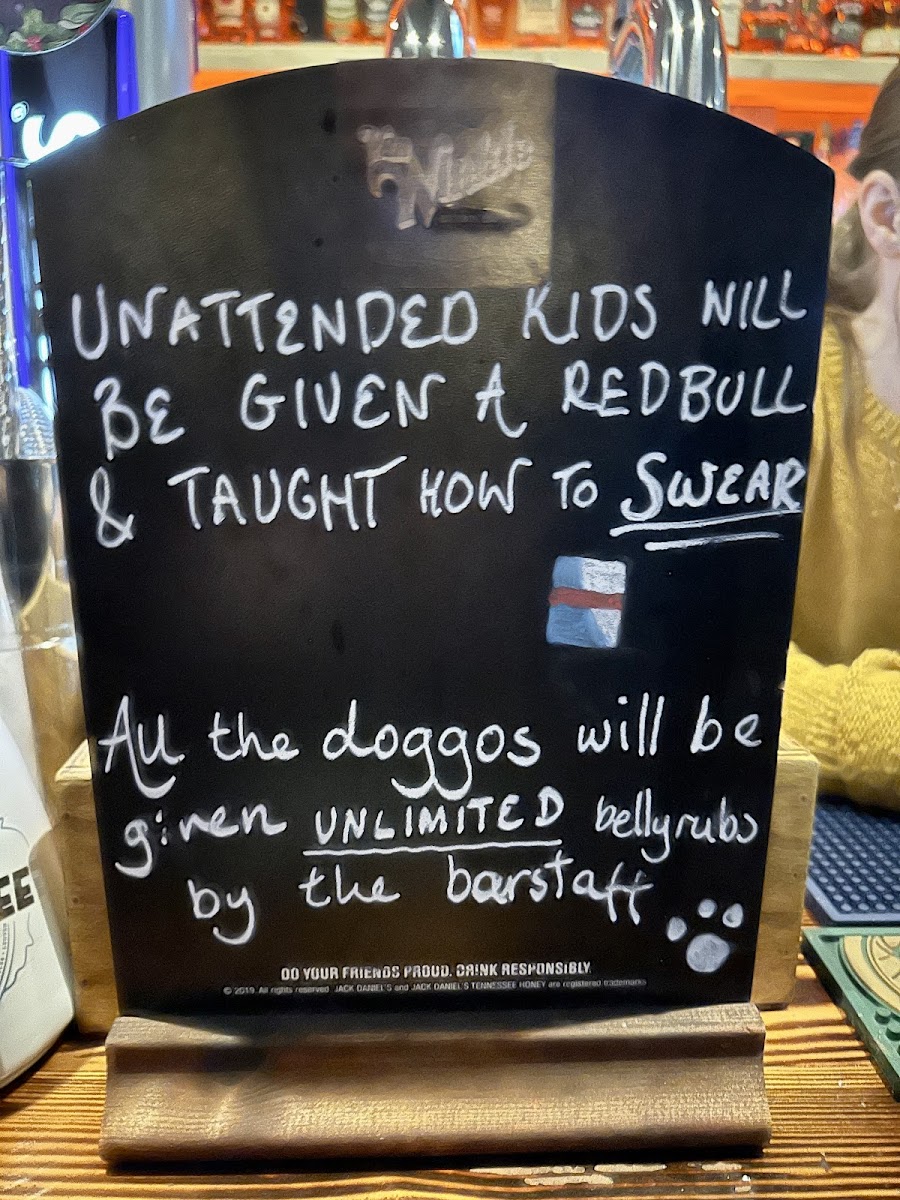 UNATTENDED KIDS WILL
BE GIVEN A REDBULL
& TAUGHT HOW TO SWEAR
All the doggos will be
given UNLIMITED bellyrubs
by the barstaff
DO YOUR FRIENDS PROUD. DRINK RESPONSIBLY.
© 2019. All rights reserved. JACK DANIEL'S and JACK DANIEL'S TENNESSEE HONEY are registered trademarks
EE